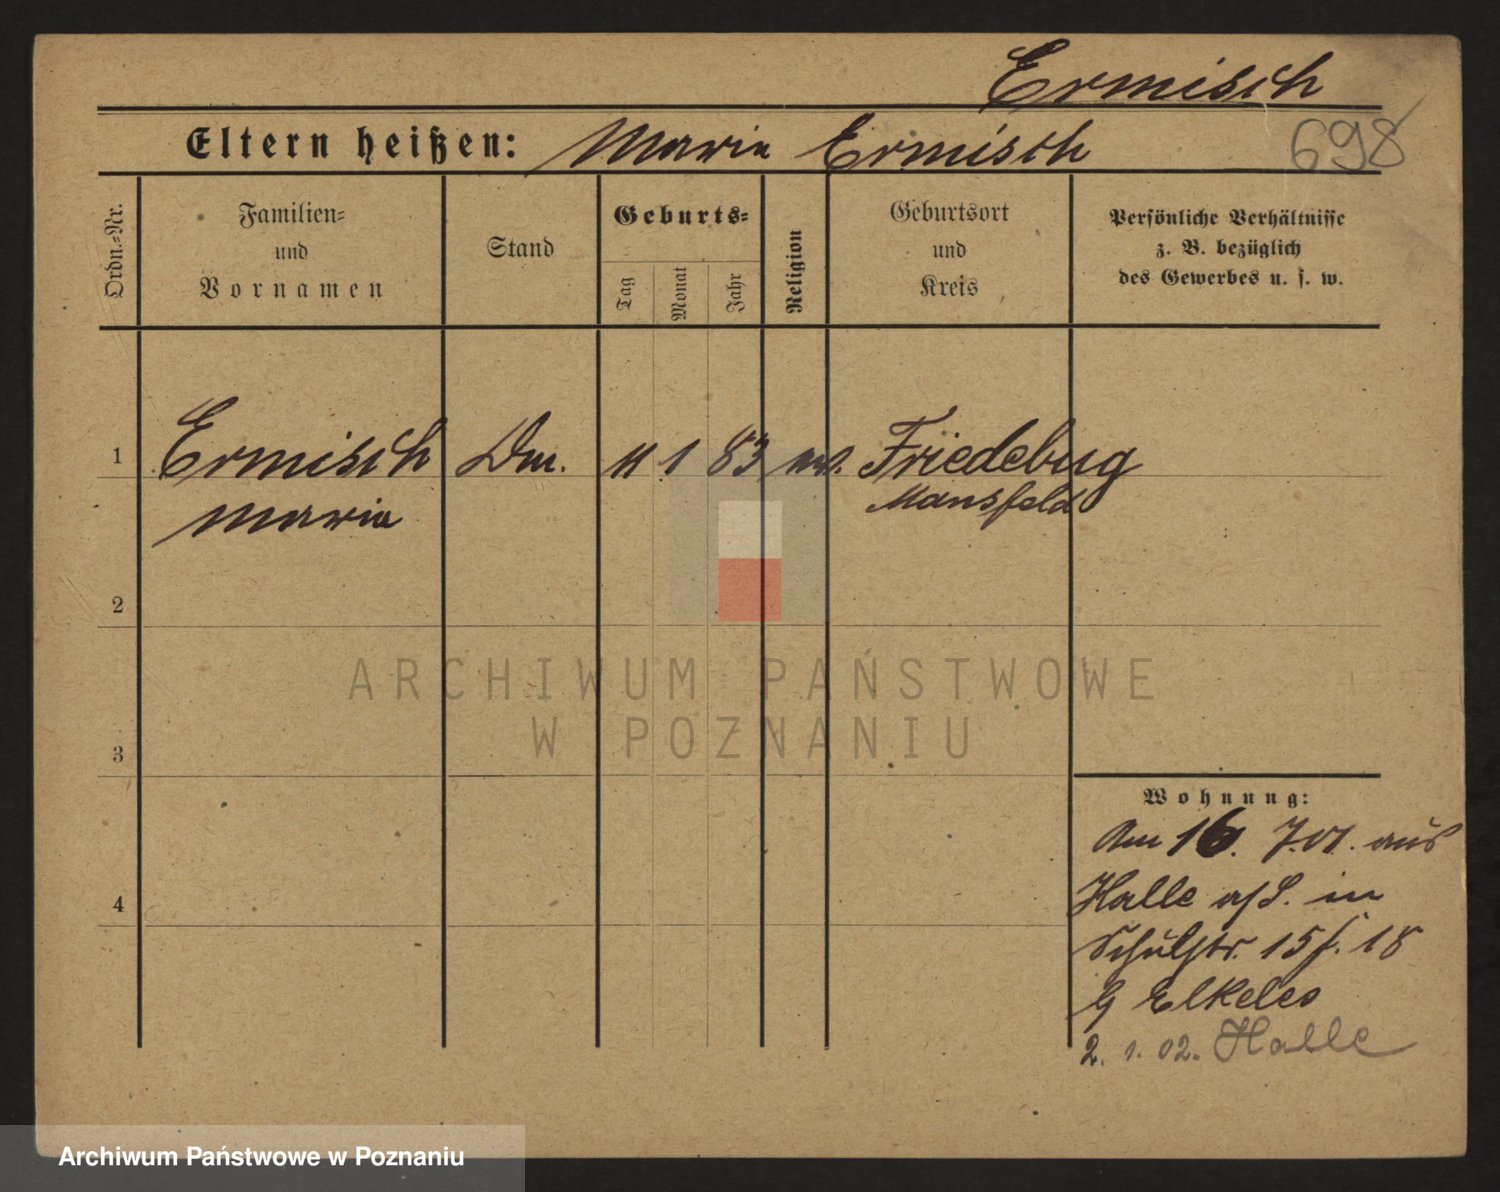 Ermisch
Eltern heißen: Marie Ermisch
698
Ordn.-Nr.
Familien-
und
Vornamen
Stand
Geburts-
Tag
Monat
Jahr
Religion
Geburtsort
und
Kreis
Persönliche Verhältnisse
z. B. bezüglich
des Gewerbes u. s. w.
1 Ermisch 11 1 83 Friedebug
Marie Mansfeld
2
3
4
ARCHIWUM PAŃSTWOWE
W POZNANIU
Wohnung:
Am 16. 7.01. aus
Halle a/S. in
Schulstr. 15 18
Elkeles
2. 1. 02. Halle
Archiwum Państwowe w Poznaniu